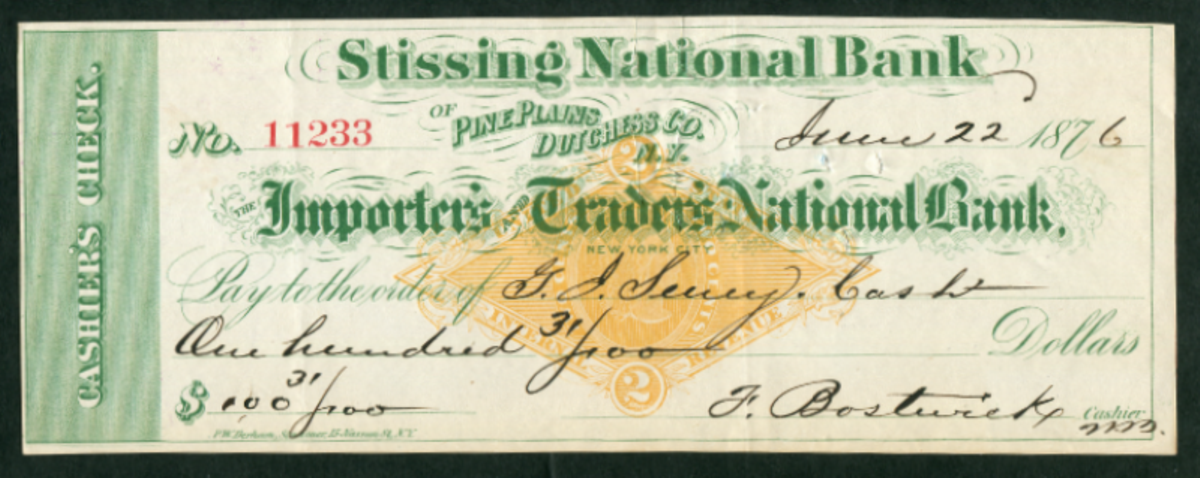 CASHIER'S CHECK.
Stissing National Bank
OF PINE PLAINS
DUTCHESS CO.
N.Y.
No. 11233
June 22 1876
THE Importers AND Traders National Bank,
NEW YORK CITY
Pay to the order of G. I. Seney. Cash
One hundred 31/100 Dollars
$ 100 31/100
F. Bostwick Cashier
2
INTERNAL REVENUE
2